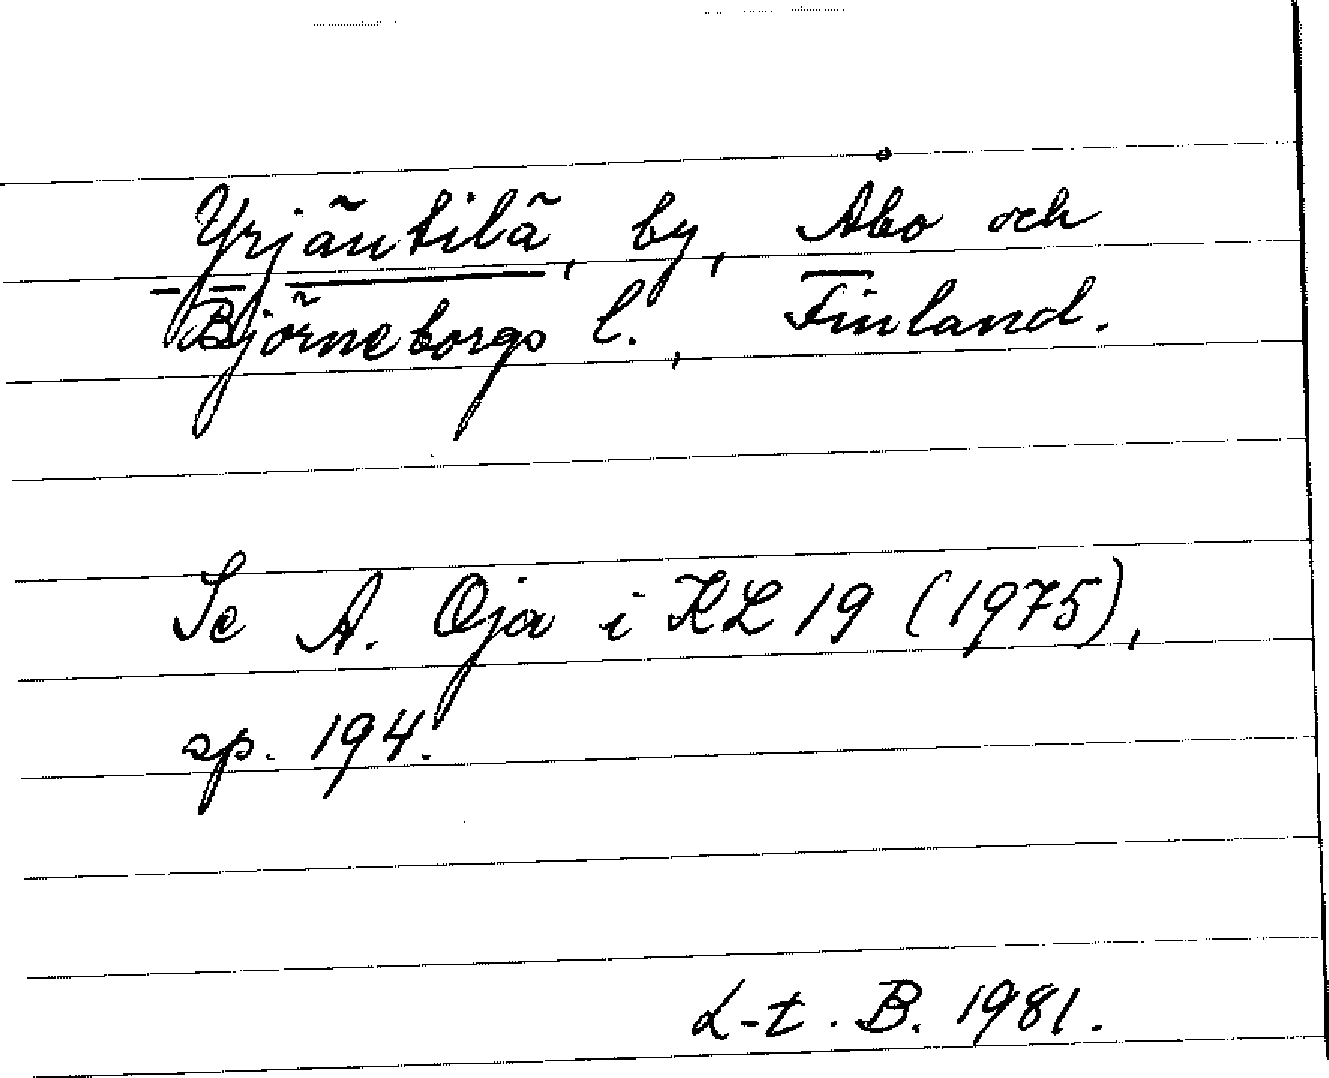 Yrjäntilä, by, Åbo och
Björneborgs l., Finland.
Se A. Oja i KL 19 (1975),
sp. 194.
L-t. B. 1981.